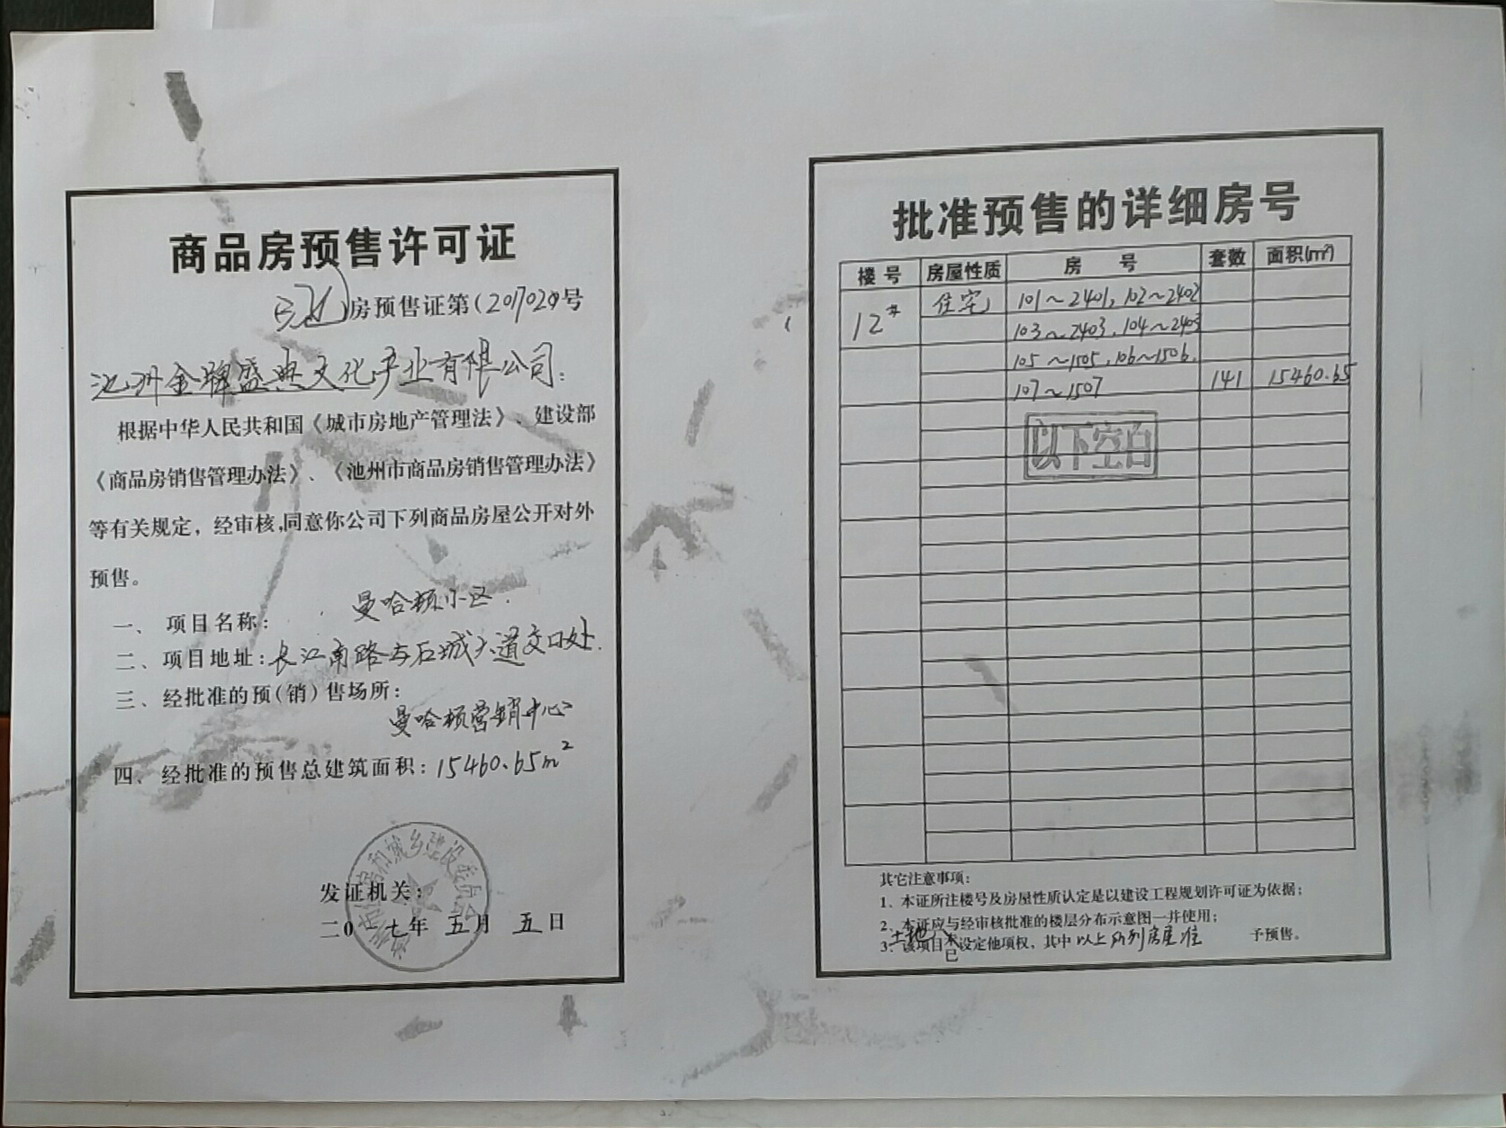 商品房预售许可证
房预售证第(2017020)号
池州金牌盛典文化产业有限公司:
根据中华人民共和国《城市房地产管理法》、建设部
《商品房销售管理办法》、《池州市商品房销售管理办法》
等有关规定,经审核,同意你公司下列商品房屋公开对外
预售。
一、项目名称: 曼哈顿小区
二、项目地址:长江南路与石城大道交口处.
三、经批准的预(销)售场所:
曼哈顿营销中心
四、经批准的预售总建筑面积:15460.65m²
发证机关:
二0一七年 五月 五日
批准预售的详细房号
楼号 房屋性质 房 号 套数 面积(m²)
12# 住宅 101~2401, 102~2402
103~2403, 104~2403
105~1505, 106~1506.
107~1507 141 15460.65
以下空白
其它注意事项:
1、本证所注楼号及房屋性质认定是以建设工程规划许可证为依据;
2、本证应与经审核批准的楼层分布示意图一并使用;
土地
3、该项目未已设定他项权,其中以上所列房屋准 予预售。